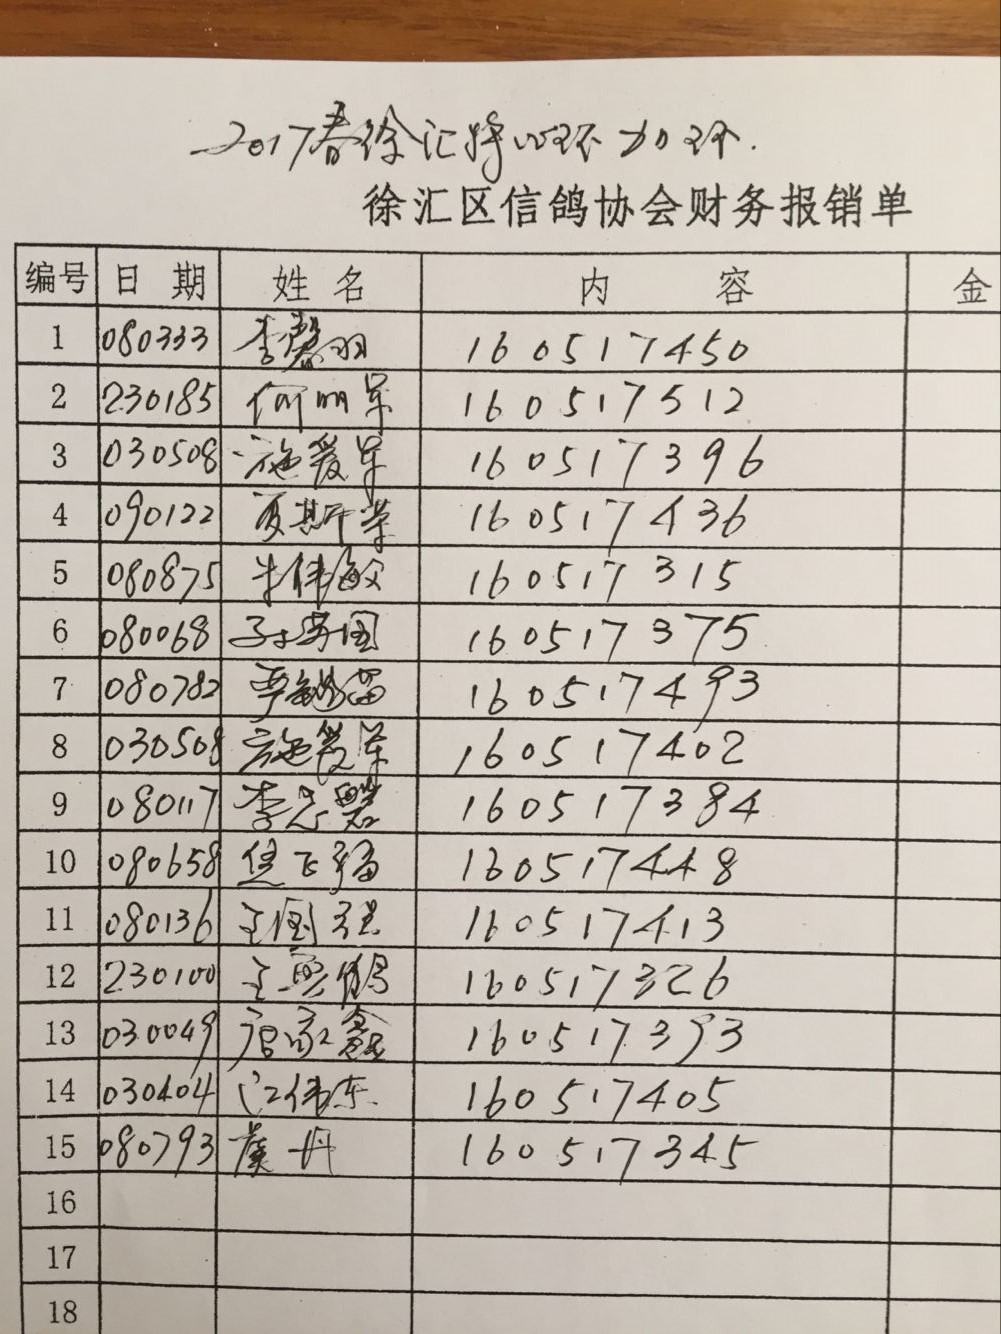 2017春徐汇特比环加环.
徐汇区信鸽协会财务报销单
编号 日 期 姓 名 内 容 金
1 080333 李馨羽 160517450
2 230185 何明军 160517512
3 030508 施爱军 160517396
4 090122 夏斯荣 160517436
5 080875 朱伟敏 160517315
6 080068 孙芳国 160517375
7 080782 160517493
8 030508 施爱军 160517402
9 080117 李 160517384
10 080658 飞 160517448
11 080136 王国强 160517413
12 230100 王兴鹤 160517326
13 030049 唐家鑫 160517393
14 030404 江伟东 160517405
15 080793 丹 160517345
16
17
18